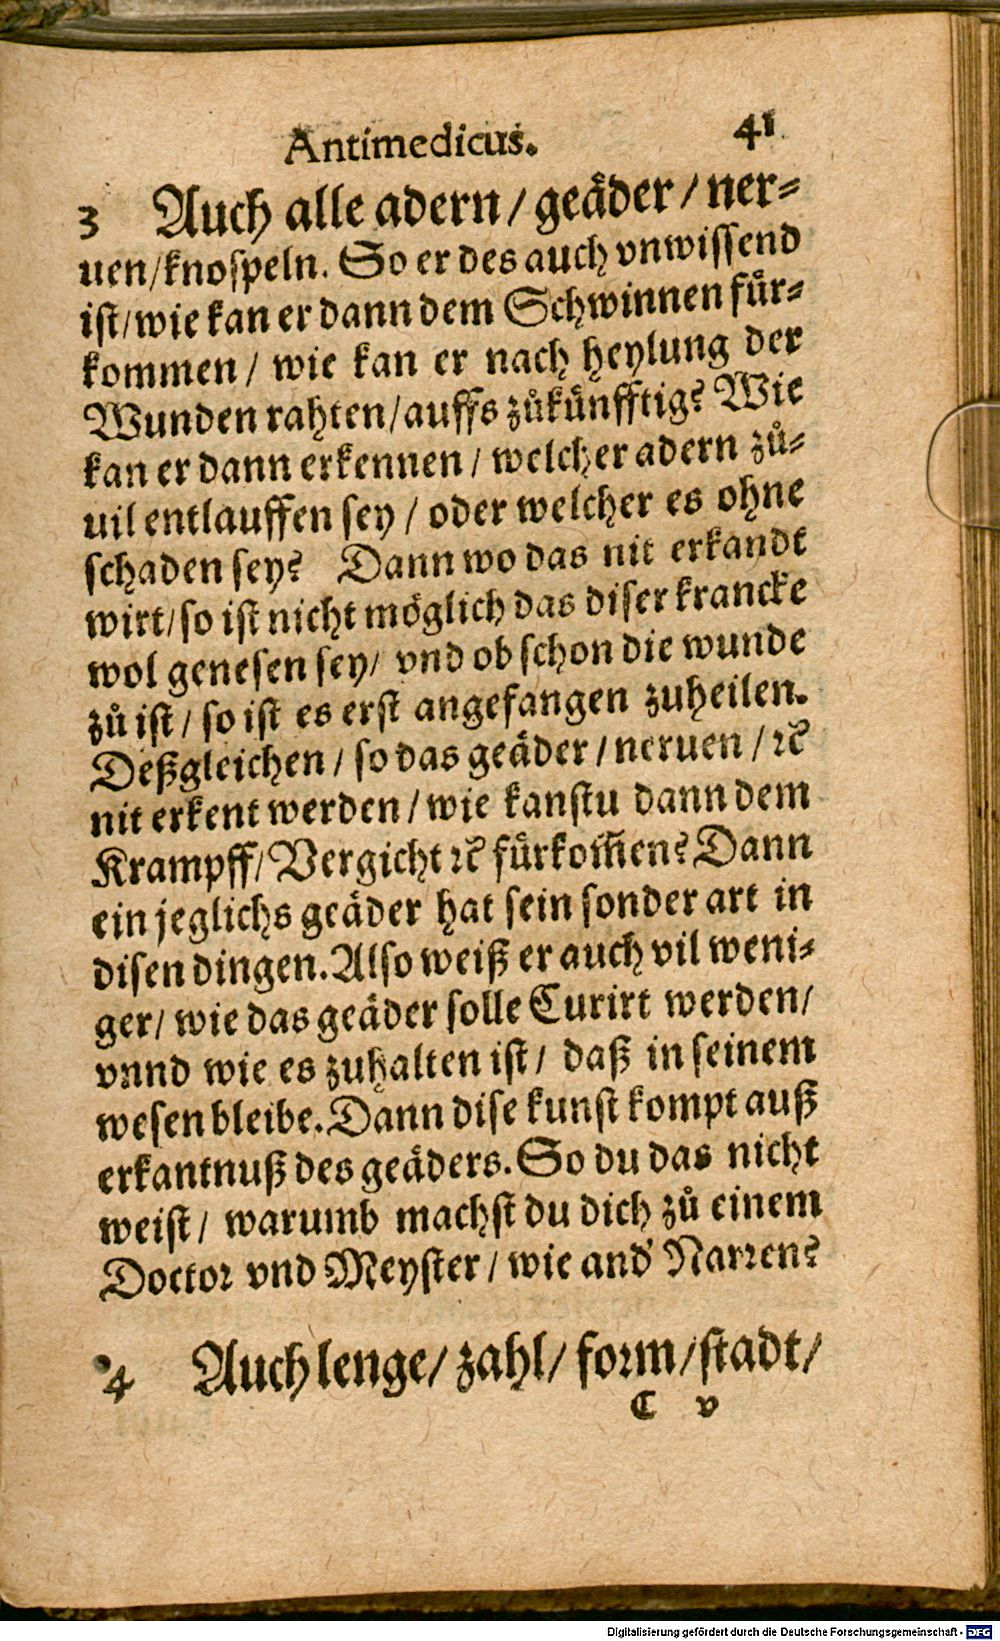 Antimedicus. 41
3 Auch alle adern / geäder / ner⸗
uen / knospeln. So er des auch vnwissend
ist / wie kan er dann dem Schwinnen fuͤr⸗
kommen / wie kan er nach heylung der
Wunden rahten / auffs zuͦkuͤnfftig? Wie
kan er dann erkennen / welcher adern zuͦ⸗
uil entlauffen sey / oder welcher es ohne
schaden sey? Dann wo das nit erkandt
wirt / so ist nicht moͤglich das diser krancke
wol genesen sey / vnd ob schon die wunde
zuͦ ist / so ist es erst angefangen zuheilen.
Deßgleichen / so das geäder / neruen / ꝛc̃
nit erkent werden / wie kanstu dann dem
Krampff / Vergicht ꝛc̃ fuͤrkom̃en? Dann
ein jeglichs geäder hat sein sonder art in
disen dingen. Also weiß er auch vil weni⸗
ger / wie das geäder solle Curirt werden /
vnnd wie es zuhalten ist / daß in seinem
wesen bleibe. Dann dise kunst kompt auß
erkantnuß des geäders. So du das nicht
weist / warumb machst du dich zuͦ einem
Doctor vnd Meyster / wie and' Narren?
4 Auch lenge / zahl / form / stadt /
C v
Digitalisierung gefördert durch die Deutsche Forschungsgemeinschaft - DFG